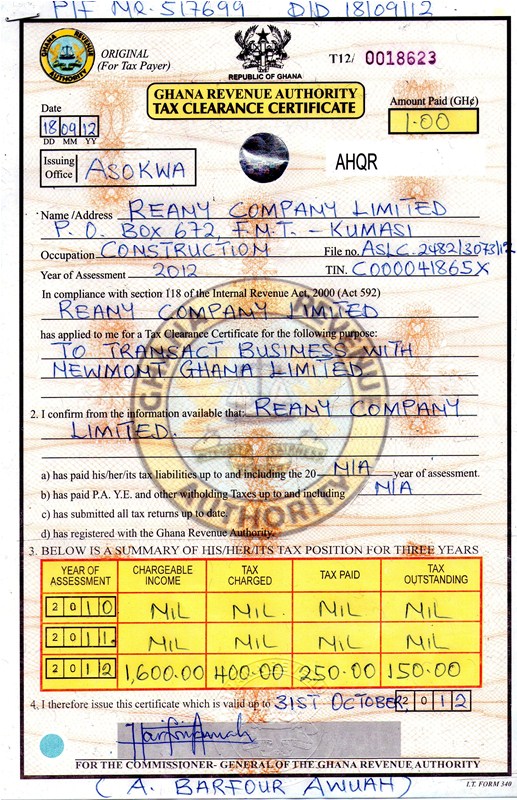 P/F NR. 517699 DID 18/09/12
GHANA REVENUE AUTHORITY
ORIGINAL
(For Tax Payer)
REPUBLIC OF GHANA
T12/ 0018623
GHANA REVENUE AUTHORITY
TAX CLEARANCE CERTIFICATE
Date
18 09 12
DD MM YY
Amount Paid (GH¢)
1.00
Issuing Office ASOKWA
AHQR
Name /Address REANY COMPANY LIMITED
P. O. BOX 672, F.N.T. - KUMASI
Occupation CONSTRUCTION File no. ASLC. 2482/3073/12
Year of Assessment 2012 TIN. C000041865X
In compliance with section 118 of the Internal Revenue Act, 2000 (Act 592)
REANY COMPANY LIMITED
has applied to me for a Tax Clearance Certificate for the following purpose:
TO TRANSACT BUSINESS WITH
NEWMONT GHANA LIMITED
2. I confirm from the information available that: REANY COMPANY
LIMITED.
a) has paid his/her/its tax liabilities up to and including the 20 N/A year of assessment.
b) has paid P.A. Y.E. and other witholding Taxes up to and including N/A
c) has submitted all tax returns up to date.
d) has registered with the Ghana Revenue Authority.
3. BELOW IS A SUMMARY OF HIS/HER/ITS TAX POSITION FOR THREE YEARS
YEAR OF ASSESSMENT CHARGEABLE INCOME TAX CHARGED TAX PAID TAX OUTSTANDING
2010 NIL NIL NIL NIL
2011 NIL NIL NIL NIL
2012 1,600.00 400.00 250.00 150.00
4. I therefore issue this certificate which is valid up to 31ST OCTOBER, 2012
FOR THE COMMISSIONER- GENERAL OF THE GHANA REVENUE AUTHORITY
(A. BARFOUR AWUAH)
I.T. FORM 340